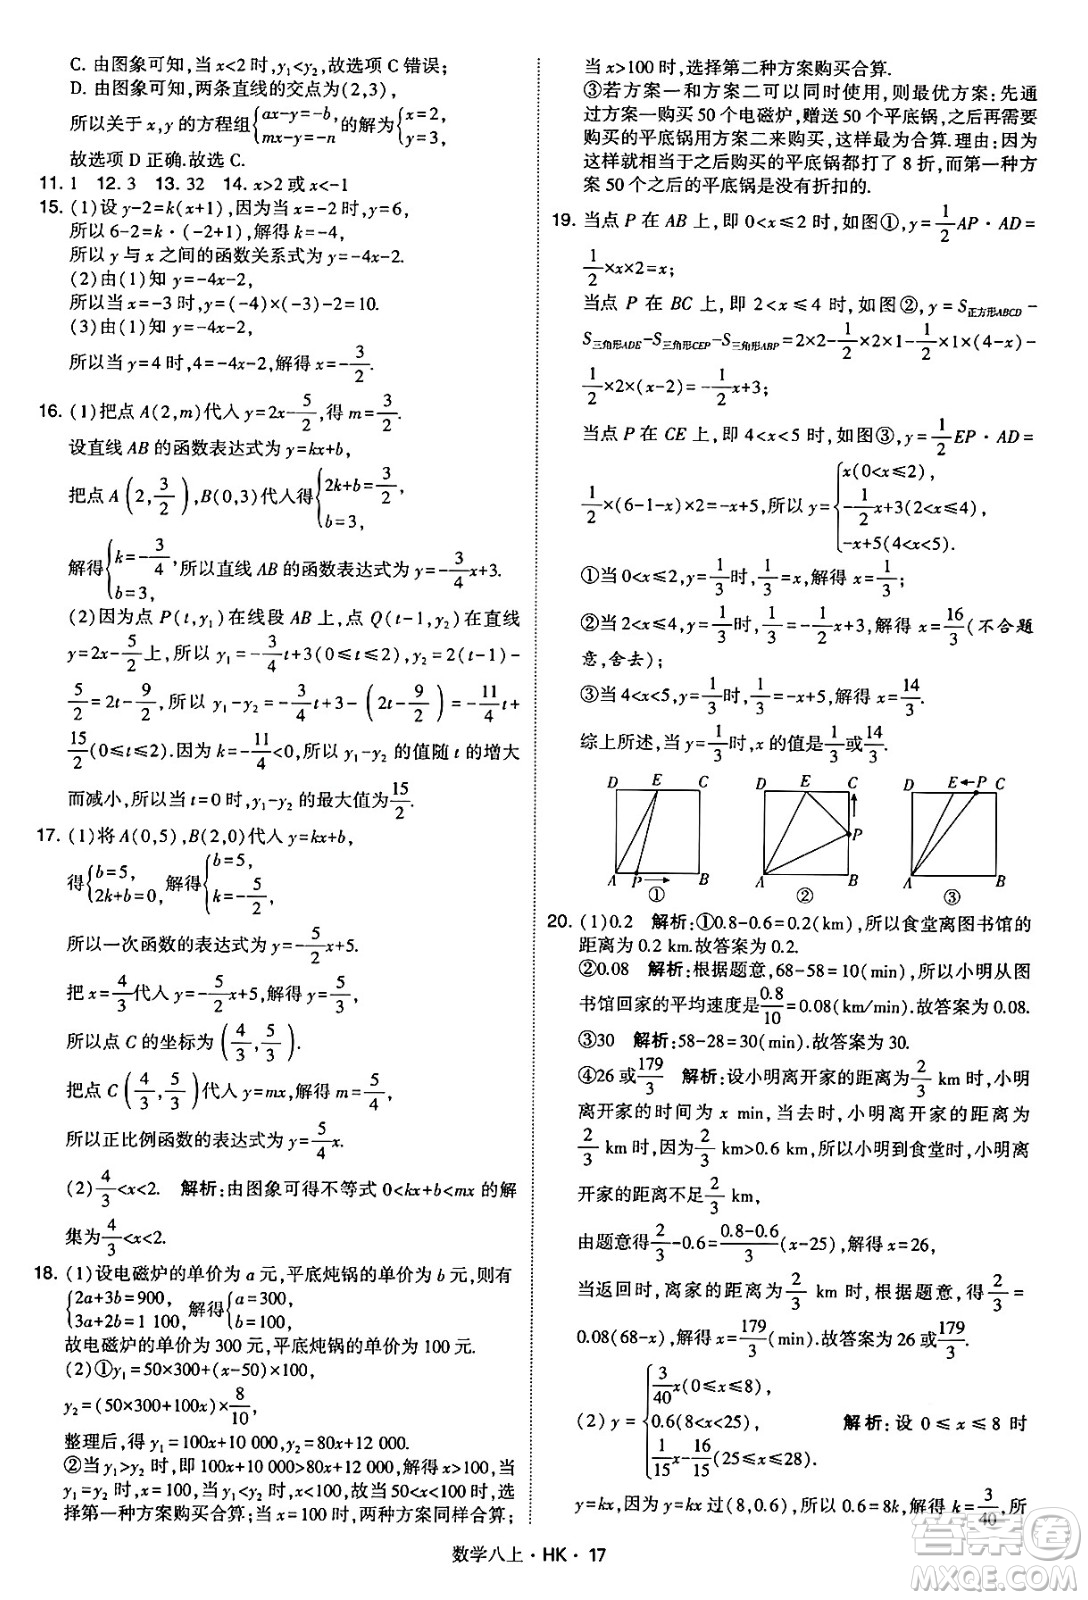 C. 由图象可知,当 x<2 时,y₁<y₂,故选项 C 错误;
D. 由图象可知,两条直线的交点为(2,3),
所以关于 x,y 的方程组{ax-y=-b, mx-y=-n 的解为{x=2, y=3,
故选项 D 正确.故选 C.
11. 1 12. 3 13. 32 14. x>2 或 x<-1
15. (1)设 y-2=k(x+1),因为当 x=-2 时,y=6,
所以 6-2=k·(-2+1),解得 k=-4,
所以 y 与 x 之间的函数关系式为 y=-4x-2.
(2)由(1)知 y=-4x-2,
所以当 x=-3 时,y=-4×(-3)-2=10.
(3)由(1)知 y=-4x-2,
所以当 y=4 时,4=-4x-2,解得 x=-3/2.
16. (1)把点 A(2,m)代人 y=2x-5/2,得 m=3/2.
设直线 AB 的函数表达式为 y=kx+b,
把点 A(2,3/2),B(0,3)代人得{2k+b=3/2, b=3,
解得{k=-3/4, b=3, 所以直线 AB 的函数表达式为 y=-3/4x+3.
(2)因为点 P(t,y₁)在线段 AB 上,点 Q(t-1,y₂)在直线
y=2x-5/2上,所以 y₁=-3/4t+3(0≤t≤2),y₂=2(t-1)-
5/2=2t-9/2,所以 y₁-y₂=-3/4t+3-(2t-9/2)=-11/4t+
15/2(0≤t≤2).因为 k=-11/4<0,所以 y₁-y₂ 的值随 t 的增大
而减小,所以当 t=0 时,y₁-y₂ 的最大值为15/2.
17. (1)将 A(0,5),B(2,0)代人 y=kx+b,
得{b=5, 2k+b=0, 解得{b=5, k=-5/2,
所以一次函数的表达式为 y=-5/2x+5.
把 x=4/3代人 y=-5/2x+5,得 y=5/3,
所以点 C 的坐标为(4/3,5/3).
把点 C(4/3,5/3)代人 y=mx,得 m=5/4,
所以正比例函数的表达式为 y=5/4x.
(2)4/3<x<2. 解析:由图象可得不等式 0<kx+b<mx 的解
集为4/3<x<2.
18. (1)设电磁炉的单价为 a 元,平底炖锅的单价为 b 元,则有
{2a+3b=900, 3a+2b=1 100, 解得{a=300, b=100.
故电磁炉的单价为 300 元,平底炖锅的单价为 100 元.
(2)①y₁=50×300+(x-50)×100,
y₂=(50×300+100x)×8/10,
整理后,得 y₁=100x+10 000,y₂=80x+12 000.
②当 y₁>y₂ 时,即 100x+10 000>80x+12 000,解得 x>100,当
y₁=y₂ 时,x=100,当 y₁<y₂ 时,x<100,故当 50<x<100 时,选
择第一种方案购买合算;当 x=100 时,两种方案同样合算;
当 x>100 时,选择第二种方案购买合算.
③若方案一和方案二可以同时使用,最优方案:先通
过方案一购买 50 个电磁炉,赠送 50 个平底锅,再需要
购买的平底锅用方案二来购买,这样最为合算.理由:因为
这样就相当于之后购买的平底锅都打了 8 折,而第一种方
案 50 个之后的平底锅是没有折扣的.
19. 当点 P 在 AB 上,即 0<x≤2 时,如图①,y=1/2AP·AD=
1/2×x×2=x;
当点 P 在 BC 上,即 2<x≤4 时,如图②,y=S正方形ABCD-
S三角形ADE-S三角形CEP-S三角形ABP=2×2-1/2×2×1-1/2×1×(4-x)-
1/2×2×(x-2)=-1/2x+3;
当点 P 在 CE 上,即 4<x<5 时,如图③,y=1/2EP·AD=
1/2×(6-1-x)×2=-x+5,所以 y={x(0<x≤2), -1/2x+3(2<x≤4), -x+5(4<x<5).
①当 0<x≤2,y=1/3时,1/3=x,解得 x=1/3;
②当 2<x≤4,y=1/3时,1/3=-1/2x+3,解得 x=16/3(不合题
意,舍去);
③当 4<x<5,y=1/3时,1/3=-x+5,解得 x=14/3.
综上所述,当 y=1/3时,x 的值是1/3或14/3.
D E C A P B ①
D E C P A B ②
D E P C A B ③
20. (1)0.2 解析:①0.8-0.6=0.2(km),所以食堂离图书馆的
距离为 0.2 km.故答案为 0.2.
②0.08 解析:根据题意,68-58=10(min),所以小明从图
书馆回家的平均速度是0.8/10=0.08(km/min).故答案为 0.08.
③30 解析:58-28=30(min),故答案为 30.
④26 或179/3 解析:设小明离开家的距离为2/3 km 时,小明
离开家的时间为 x min,当去时,小明离开家的距离为
2/3 km 时,因为2/3 km>0.6 km,所以小明到食堂时,小明离
开家的距离不足2/3 km,
由题意得2/3-0.6=0.8-0.6/3(x-25),解得 x=26,
当返回时,离家的距离为2/3 km 时,根据题意,得2/3=
0.08(68-x),解得 x=179/3(min).故答案为 26 或179/3.
(2)y={3/40x(0≤x≤8), 0.6(8<x<25), 1/15x-16/15(25≤x≤28). 解析:设 0≤x≤8 时
y=kx,因为 y=kx 过(8,0.6),所以 0.6=8k,解得 k=3/40,所
数学八上·HK·17
答案圈
MXQE.COM